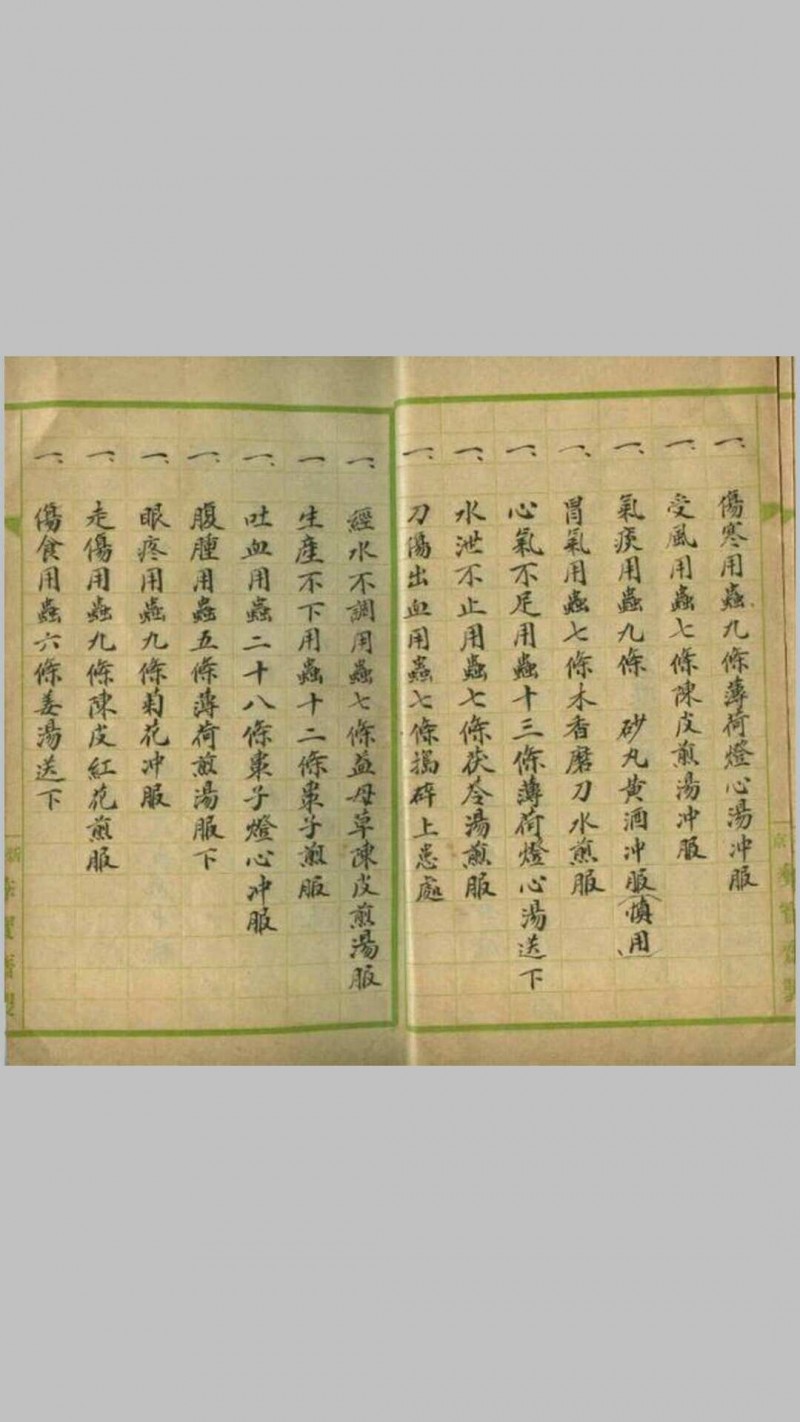 一、傷寒用蟲九條薄荷燈心湯冲服
一、受風用蟲七條陳皮煎湯冲服
一、氣痰用蟲九條 砂丸黄酒冲服(慎用)
一、胃氣用蟲七條木香磨刀水煎服
一、心氣不足用蟲十三條薄荷燈心湯送下
一、水泄不止用蟲七條茯苓湯煎服
一、刀傷出血用蟲七條搗碎上患處
一、經水不調用蟲七條益母草陳皮煎湯服
一、生產不下用蟲十二條棗子煎服
一、吐血用蟲二十八條棗子燈心冲服
一、腹腫用蟲五條薄荷煎湯服下
一、眼疼用蟲九條菊花冲服
一、走傷用蟲九條陳皮紅花煎服
一、傷食用蟲六條姜湯送下